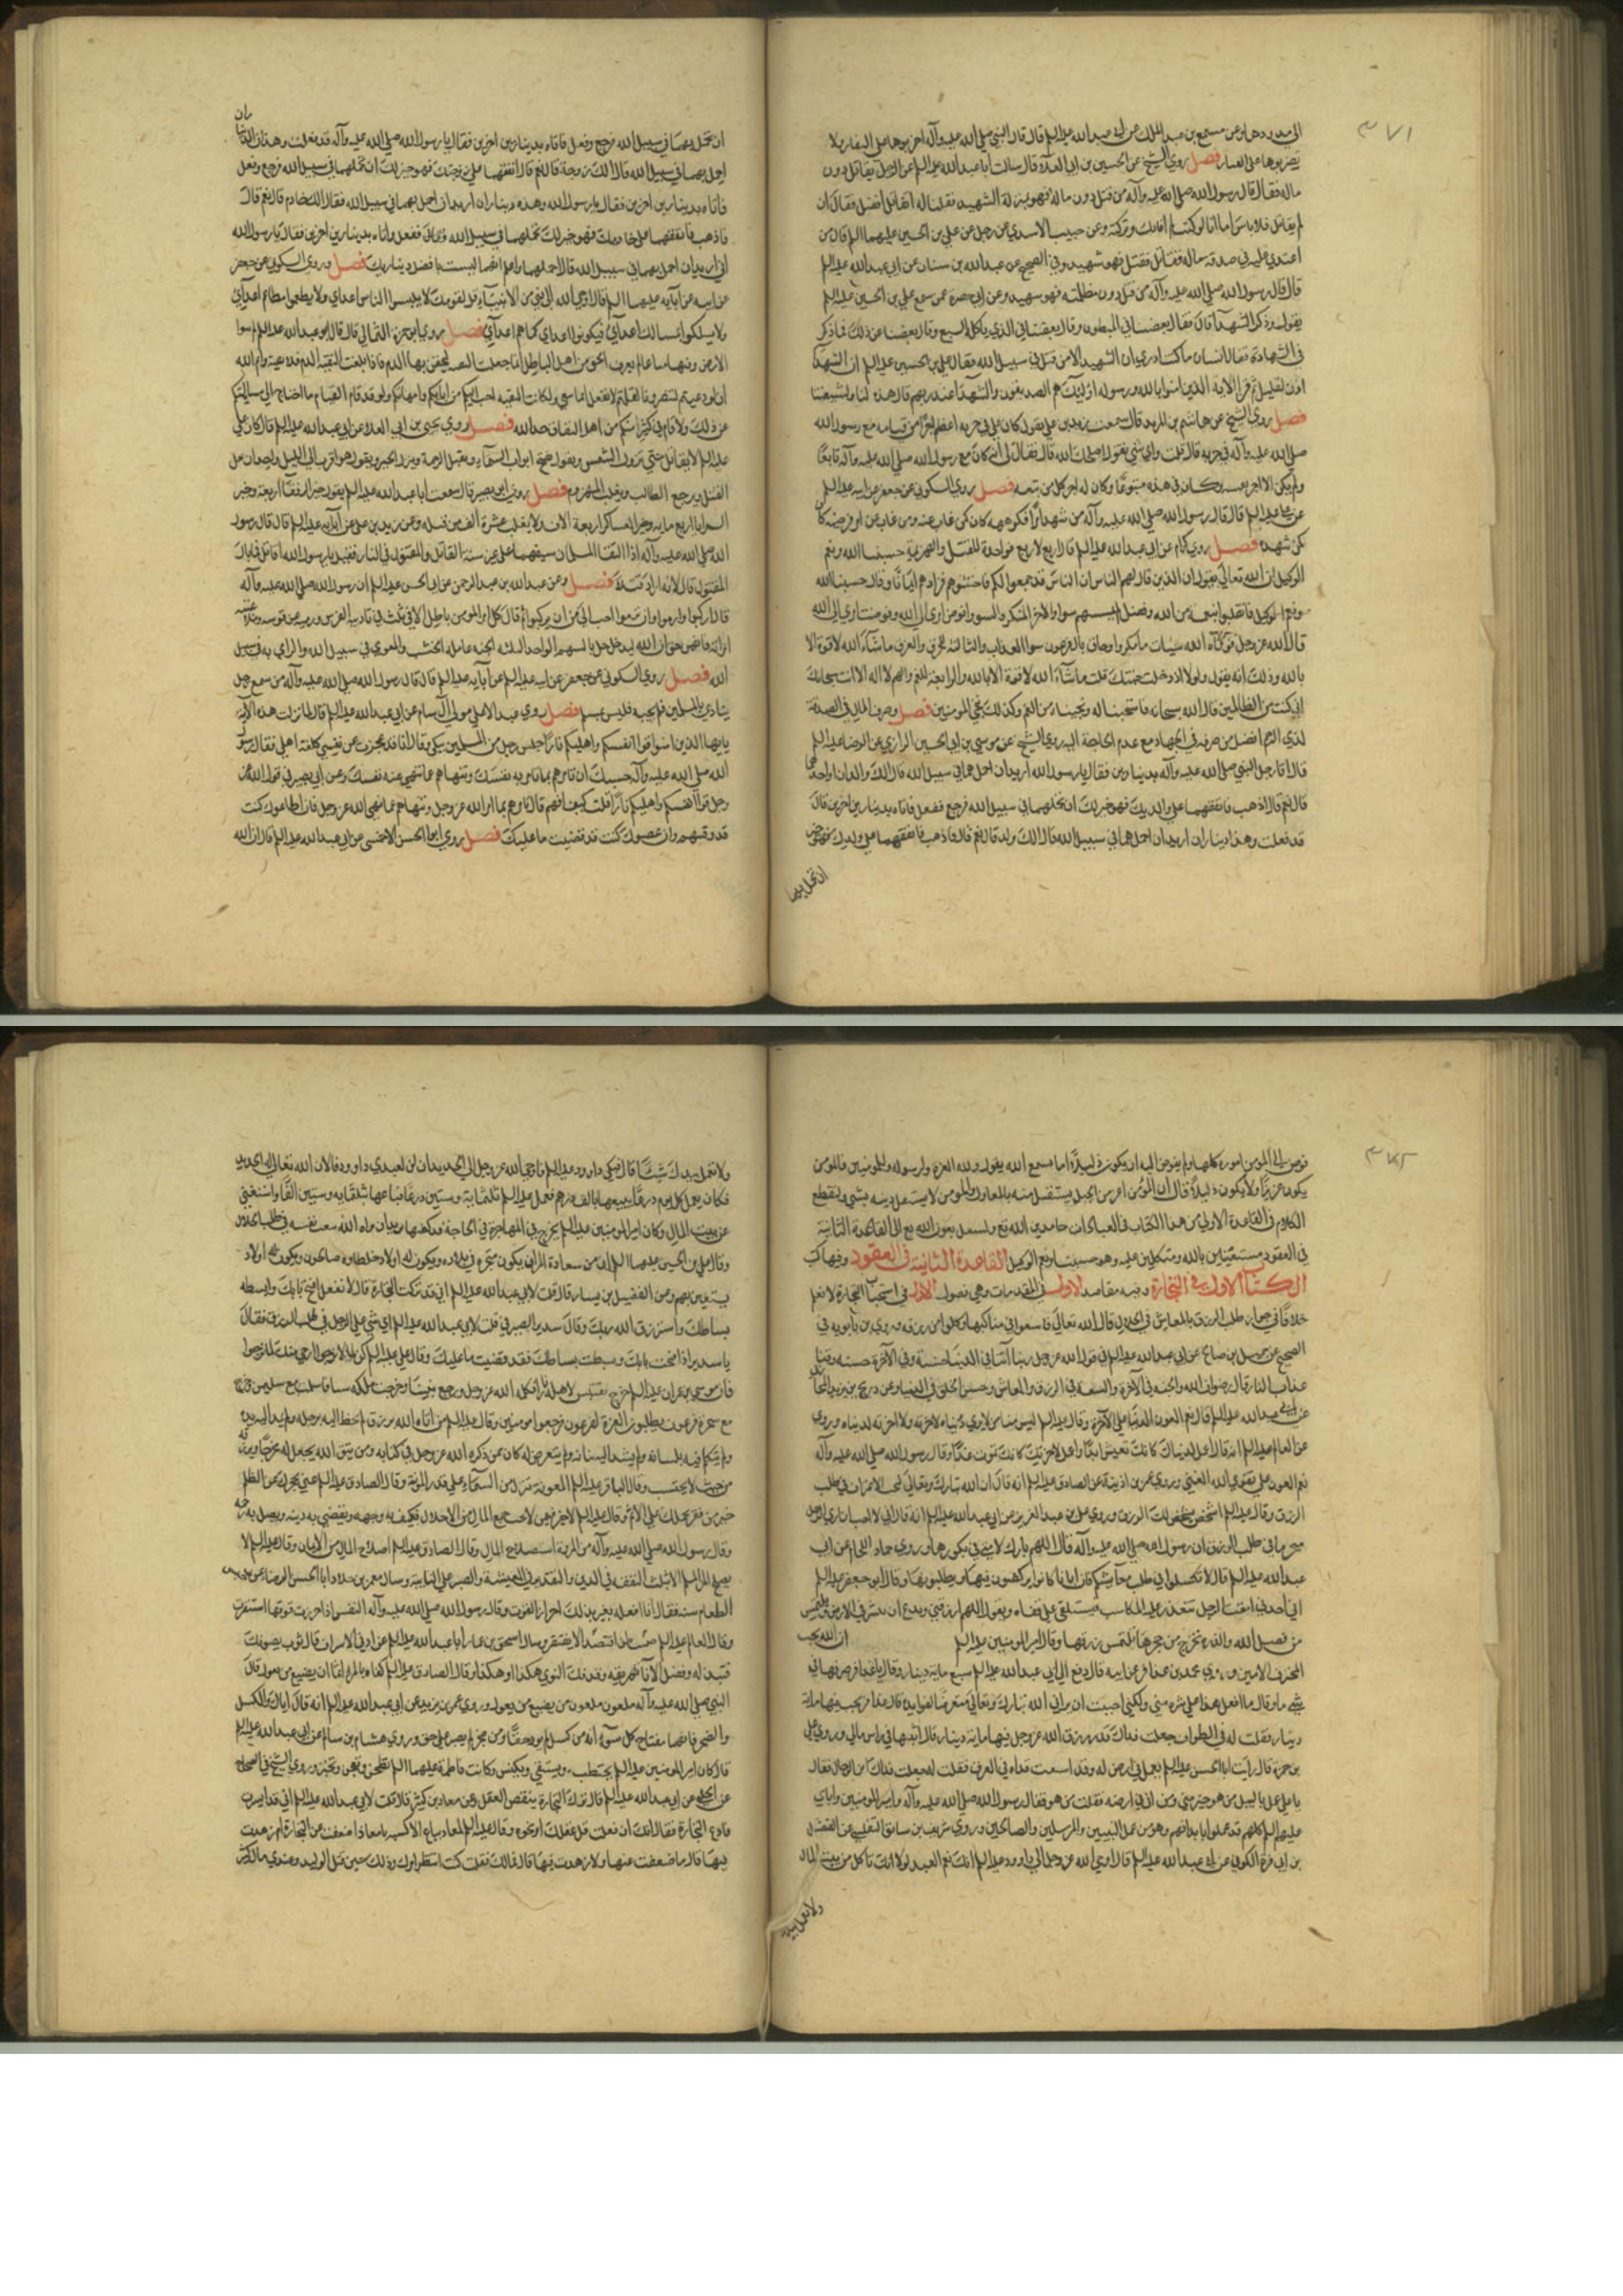 ٣٧١
عن مسمع بن عبد الملك عن ابي عبد الله عليه السلم قال قال النبي صلى الله عليه وآله اضربوها على النفار ولا
تضربوها على العثار فصل روى الشيخ عن الحسين بن ابي العلاء قال سالت ابا عبد الله عليه السلم عن الرجل يقاتل دون
ماله فقال قال رسول الله صلى الله عليه وآله من قتل دون ماله فهو بمنزلة الشهيد فقلنا له افيقاتل افضل فقال ان
لم يقاتل فلا باس اما انا لو كنت لم اقاتل وتركته وعن حبيب الاسدي عن رجل عن علي بن الحسين عليهما السلم قال من
اعتدي عليه في صدقة ماله فقاتل فقتل فهو شهيد وفي الصحيح عن عبد الله بن سنان عن ابي عبد الله عليه السلم
قال قال رسول الله صلى الله عليه وآله من قتل دون مظلمته فهو شهيد وعن ابي حمزة عمن سمع علي بن الحسين عليه السلم
يقول وذكر الشهدآ قال فقال بعضنا في المبطون وقال بعضنا في الذي ياكله السبع وقال بعضنا غير ذلك مما ذكر
في الشهادة فقال انسان ما كنت ادري ان الشهيد الا من قتل في سبيل الله فقال علي بن الحسين عليه السلم ان الشهدآ
اذن لقليل ثم قرا الاية الذين امنوا بالله ورسوله اولئك هم الصديقون والشهدآ عند ربهم قال هذه لنا ولشيعتنا
فصل روى الشيخ عن هاشم بن البريد قال سمعت زيد بن علي يقول كان علي في حربه اعظم اجرًا من قيامه مع رسول الله
صلى الله عليه وآله في حربه قال قلت واي شي يقول اصلحك الله قال فقال لي انه كان مع رسول الله صلى الله عليه وآله تابعًا
ولم يكن له الا اجر تبعيته وكان في هذه متبوعًا وكان له اجر كل من تبعه فصل روى السكوني عن جعفر عن ابيه عليه السلم
عن علي عليه السلم قال قال رسول الله صلى الله عليه وآله من شهد امرًا فكرهه كان كمن غاب عنه ومن غاب عن امر فرضيه كان
كمن شهده فصل روي عن ابي عبد الله عليه السلم قال اربع لاربع فواحدة للقتل والهزيمة حسبنا الله ونعم
الوكيل ان الله تعالى يقول الذين قال لهم الناس ان الناس قد جمعوا لكم فاخشوهم فزادهم ايمانًا وقالوا حسبنا الله
ونعم الوكيل فانقلبوا بنعمة من الله وفضل لم يمسسهم سوء والاخرى للمكر والسوء وافوض امري الى الله وفوضت امري الى الله
قال الله عز وجل فوقاه الله سيئات ما مكروا وحاق بال فرعون سوء العذاب والثالثة للحرق والغرق ما شآء الله لا قوة الا
بالله وذلك انه يقول ولولا اذ دخلت جنتك قلت ما شآء الله لا قوة الا بالله والرابعة للغم والهم لا اله الا انت سبحانك
اني كنت من الظالمين قال الله سبحانه فاستجبنا له ونجيناه من الغم وكذلك ننجي المومنين فصل وصرف المال في الصدقة
لذي الرحم افضل من صرفه في الجهاد مع عدم الحاجة اليه روى الشيخ عن موسى بن ابي الحسين الرازي عن الرضا عليه السلم
قال اتا رجل النبي صلى الله عليه وآله بدينارين فقال يا رسول الله اريد ان احمل بهما في سبيل الله قال الك والدان او احدهما
قال نعم قال اذهب فانفقهما على والديك فهو خير لك ان تحملهما في سبيل الله فرجع ففعل فاتاه بدينارين اخرين قال
قد فعلت وهذا ديناران اريد ان احمل بهما في سبيل الله قال الك ولد قال نعم قال فاذهب فانفقهما على ولدك فهو خير
ان تحمل بهما
ان تحمل بهما في سبيل الله فرجع وفعل فاتاه بدينارين اخرين فقال يا رسول الله صلى الله عليه وآله قد فعلت وهذان الديناران
احمل بهما في سبيل الله قال الك زوجة قال نعم قال انفقهما على زوجتك فهو خير لك ان تحملهما في سبيل الله فرجع وفعل
فاتاه بدينارين اخرين فقال يا رسول الله وهذه ديناران اريد ان احمل بهما في سبيل الله فقال الك خادم قال نعم قال
فاذهب فانفقهما على خادمك فهو خير لك ان تحملهما في سبيل الله ففعل واتاه بدينارين اخرين فقال يا رسول الله
اني اريد ان احمل بهما في سبيل الله قال احملهما واعلم انهما ليستا بافضل دينارك فصل وروى السكوني عن جعفر
عن ابيه عن آبآيه عليهما السلم قال اوحى الله الى نبي من الانبيآء قل لقومك لا يلبسوا لباس اعداي ولا يطعموا مطاعم اعدآي
ولا يسلكوا مسالك اعدآي فيكونوا اعداي كما هم اعدآي فصل روى ابو حمزة الثمالي قال قال ابو عبد الله عليه السلم
الارض وفيها منا عالم يعرف الحق من اهل الباطل انما جعلت التقية ليحقن بها الدم فاذا بلغت التقية الدم فلا تقية وايم الله
لو دعيتم لتنصرونا لقلتم لا نفعل انما نتقي ولكانت التقية احب اليكم من آبآيكم وامهاتكم ولو قد قام القيام ما احتاج الى مسائلتكم
عن ذلك ولاقام في كثير منكم من اهل النفاق حد الله فصل روى يحيى بن ابي العلاء عن ابي عبد الله عليه السلم قال كان علي
عليه السلم لا يقاتل حتى تزول الشمس ويقول تفتح ابواب السمآء وتقبل الرحمة وينزل النصر ويقول هو اقرب الى الليل
القتل ويرجع الطالب ويفلت المهزوم فصل روى ابو بصير قال سمعت ابا عبد الله عليه السلم يقول خير الرفقآ اربعة وخير
السرايا اربع مايه وخير العساكر اربعة الاف ولا يغلب عشرة آلاف من قلة وعن زيد بن علي عن آبآيه عليه السلم قال قال رسول
الله صلى الله عليه وآله اذا التقا المسلمان بسيفهما على غير سنة القاتل والمقتول في النار فقيل يا رسول الله القاتل فما بال
المقتول قال لانه اراد قتله فصل وعن عبد الله بن عبد الرحمن عن ابي الحسن عليه السلم ان رسول الله صلى الله عليه وآله
قال اركبوا وارموا وان ترموا احب الي من ان تركبوا ثم قال كل لهو المومن باطل الا في ثلث في تاديبه الفرس ورميه عن قوسه
الله فصل روى السكوني عن جعفر عن ابيه عليه السلم عن آبآيه عليه السلم قال قال رسول الله صلى الله عليه وآله من سمع رجل
ينادي يا للمسلمين فلم يجبه فليس بمسلم فصل روى عبد الاعلى مولى آل سام عن ابي عبد الله عليه السلم قال لما نزلت هذه الاية
يا ايها الذين امنوا قوا انفسكم واهليكم نارًا جلس رجل من المسلمين يبكي وقال انا قد عجزت عن نفسي كلفت اهلي فقال رسول
الله صلى الله عليه وآله حسبك ان تامرهم بما تامر به نفسك وتنهاهم عما تنهى عنه نفسك وعن ابي بصير في قول الله عز
وجل قوا انفسكم واهليكم نارًا قلت كيف اقيهم قال تامرهم بما امر الله عز وجل وتنهاهم عما نهى الله عز وجل فان اطاعوك كنت
قد وقيتهم وان عصوك كنت قد قضيت ما عليك فصل روى ابو الحسن الاحمسي عن ابي عبد الله عليه السلم قال ان الله
٣٧٢
فوض الى المومن اموره كلها ولم يفوض اليه ان يكون ذليلًا اما تسمع الله يقول ولله العزة ولرسوله وللمومنين فالمومن
يكون عزيزًا ولا يكون ذليلًا قال ان المومن اعز من الجبل يستفل منه بالمعاول والمومن لا يستفل من دينه بشي ولنقطع
الكلام في القاعدة الاولى من هذا الكتاب في العبادات حامدين الله تع الى القاعدة الثانية
في العقود مستعينين بالله ومتكلين عليه وهو حسبنا ونعم الوكيل القاعدة الثانية في العقود وفيها كتب
الكتاب الاول في التجارة وفيه مقاصد الاول في المقدمات وهي فصول الاول في استحباب التجارة لا نعلم
خلافًا في جواز طلب الرزق بالمعايش في الحلال قال الله تعالى فامشوا في مناكبها وكلوا من رزقه وروى ابن بابويه في
الصحيح عن جميل بن صالح عن ابي عبد الله عليه السلم في قول الله عز وجل ربنا آتنا في الدنيا حسنة وفي الآخرة حسنة وقنا
عذاب النار قال رضوان الله والجنه في الآخرة والسعة في الرزق والمعاش وحسن الخلق في الدنيا وعن ذريح بن يزيد المحاربي
عن ابي عبد الله عليه السلم قال نعم العون الدنيا على الآخرة وقال عليه السلم ليس منا من ترك دنياه لاخرته ولا اخرته لدنياه وروي
عن العالم عليه السلم انه قال اعمل لدنياك كانك تعيش ابدًا واعمل لاخرتك كانك تموت غدًا وقال رسول الله صلى الله عليه وآله
نعم العون على تقوى الله الغنى وروى عمر بن اذينة عن الصادق عليه السلم انه قال ان الله تبارك وتعالى ليحب الاغتراب في طلب
الرزق وقال عليه السلم اشخص يشخص لك الرزق وروى علي بن عبد العزيز عن ابي عبد الله عليه السلم انه قال اني لاحب ان ارى الرجل
متحرفا في طلب الرزق ان رسول الله صلى الله عليه وآله قال اللهم بارك لامتي في بكورها وروى حماد اللحام عن ابي
عبد الله عليه السلم قال لا تكسلوا في طلب معايشكم فان آبانا كانوا يركضون فيها ويطلبونها وقال ابو جعفر عليه السلم
اني اجدني امقت الرجل متعذر عليه المكاسب فيستلقي على قفاه ويقول اللهم ارزقني ويدع ان ينتشر في الارض ويلتمس
من فضل الله والذرة تخرج من جحرها تلتمس رزقها وقال امير المومنين عليه السلم ان الله يحب
المحترف الامين وروى محمد بن عذافر عن ابيه قال دفع الي ابو عبد الله عليه السلم سبع ماية دينار وقال يا عذافر صرفها في
شي ما وقال ما افعل هذا على شره مني ولكني احببت ان يراني الله تبارك وتعالى متعرضًا لفوايده قال عذافر فربحت فيها ماية
دينار فقلت له في الطواف جعلت فداك قد رزق الله عز وجل فيها ماية دينار قال اثبتها في راس مالي وروى علي
بن حمزة قال رايت ابا الحسن عليه السلم يعمل في ارض له وقد استنقعت قدماه في العرق فقلت له جعلت فداك اين الرجال فقال
يا علي عمل باليد من هو خير مني ومن ابي في ارضه فقلت من هو فقال رسول الله صلى الله عليه وآله وامير المومنين وآباي
عليهم السلم كلهم قد عملوا بايديهم وهو من عمل النبيين والمرسلين والصالحين وروى شريف بن سابق التفليسي عن الفضل
بن ابي قرة الكوفي عن ابي عبد الله عليه السلم قال اوحى الله عز وجل الى داود عليه السلم انك نعم العبد لولا انك تاكل من بيت المال
ولا تعمل بيدك
ولا تعمل بيدك شيئًا قال فبكى داود عليه السلم فاوحى الله عز وجل الى الحديد ان لن لعبدي داوود فالان الله تعالى له الحديد
فكان يعمل كل يوم درعًا يبيعها بالف درهم فعمل عليه السلم ثلثماية وستين درعًا فباعها بثلثمايه وستين الفًا واستغنى
عن بيت المال وكان امير المومنين عليه السلم يخرج في الهاجرة في الحاجة قد كفيها يريد ان يراه الله يتعب نفسه في طلب الحلال
وقال علي بن الحسين عليهما السلم ان من سعادة المرء ان يكون متجره في بلاده ويكون له اولاد خلطاوه صالحون ويكون له اولاد
يستعين بهم وعن الفضيل بن يسار قال قلت لابي عبد الله عليه السلم اني قد تركت التجارة قال لا تفعل افتح بابك وابسط
بساطك واسترزق الله ربك وقال سدير الصيرفي قلت لابي عبد الله عليه السلم اي شي على الرجل في طلب الرزق فقال
يا سدير اذا فتحت بابك وبسطت بساطك فقد قضيت ما عليك وقال علي عليه السلم كن لما لا ترجوا ارجى منك لما ترجوا
فان موسى بن عمران عليه السلم خرج يقتبس لاهله نارًا فكلمه الله عز وجل ورجع نبيًا وخرجت ملكة سبا فاسلمت مع سليمن
مع سحرة فرعون يطلبون العزة لفرعون فرجعوا مومنين وقال عليه السلم من اتاه الله برزق لم يخط اليه برجله ولم يمد اليه يده
ولم يتكلم فيه بلسانه ولم يشد اليه ثيابه ولم يتعرض له كان ممن ذكره الله عز وجل في كتابه ومن يتق الله يجعل له مخرجًا ويرزقه
من حيث لا يحتسب وقال الباقر عليه السلم المعونة تنزل من السمآء على قدر المونة وقال الصادق عليه السلم غنى يحجزك عن الظلم
خير من فقر يحملك على الاثم وقال عليه السلم لا خير فيمن لا يحب جمع المال من الاحلال فيكف به وجهه ويقضي به دينه ويصل به رحمه
وقال رسول الله صلى الله عليه وآله من المروة استصلاح المال وقال الصادق عليه السلم اصلاح المال من الايمان وقال عليه السلم لا
يصلح المرء المسلم الا بثلث التفقه في الدين والتقدير في المعيشة والصبر على النايبة وسال معمر بن خلاد ابا الحسن الرضا عن حبس
الطعام سنة فقال انا افعله يعني بذلك احراز القوت وقال رسول الله صلى الله عليه وآله النفس اذا احرزت قوتها استقرت
وقال العالم عليه السلم ضمنت لمن اقتصد ان لا يفتقر وسال اسحق بن عمار ابا عبد الله عليه السلم عن ادنى الاسراف قال ثوب صونك
تبتذله وفضل الآناء تهريقه وقذفك النوى هكذا وهكذا وقال الصادق عليه السلم كفى بالمرء اثمًا ان يضيع من يعول قال
النبي صلى الله عليه وآله ملعون ملعون من يضيع من يعول وروى عمر بن يزيد عن ابي عبد الله عليه السلم انه قال اياك والكسل
والضجر فانهما مفتاح كل سوء انه من كسل لم يود حقًا ومن ضجر لم يصبر على حق وروى هشام بن سالم عن ابي عبد الله عليه السلم
قال كان امير المومنين عليه السلم يحتطب ويستقي ويكنس وكانت فاطمة عليهما السلم تطحن وتعجن وتخبز وروى الشيخ في الصحاح
عن الحلبي عن ابي عبد الله عليه السلم قال ترك التجارة ينقص العقل وعن معاذ بن كثير قال قلت لابي عبد الله عليه السلم اني قد ايسرت
فادع التجارة فقال انك ان فعلت قل عقلك او نحوه وقال عليه السلم لمعاذ بياع الاكسية يا معاذ اضعفت عن التجارة ام زهدت
فيها قال ما ضعفت عنها ولا زهدت فيها قال فما لك فقلت كنت انتظر امرك وذلك حين قتل الوليد وعندي مال كثير